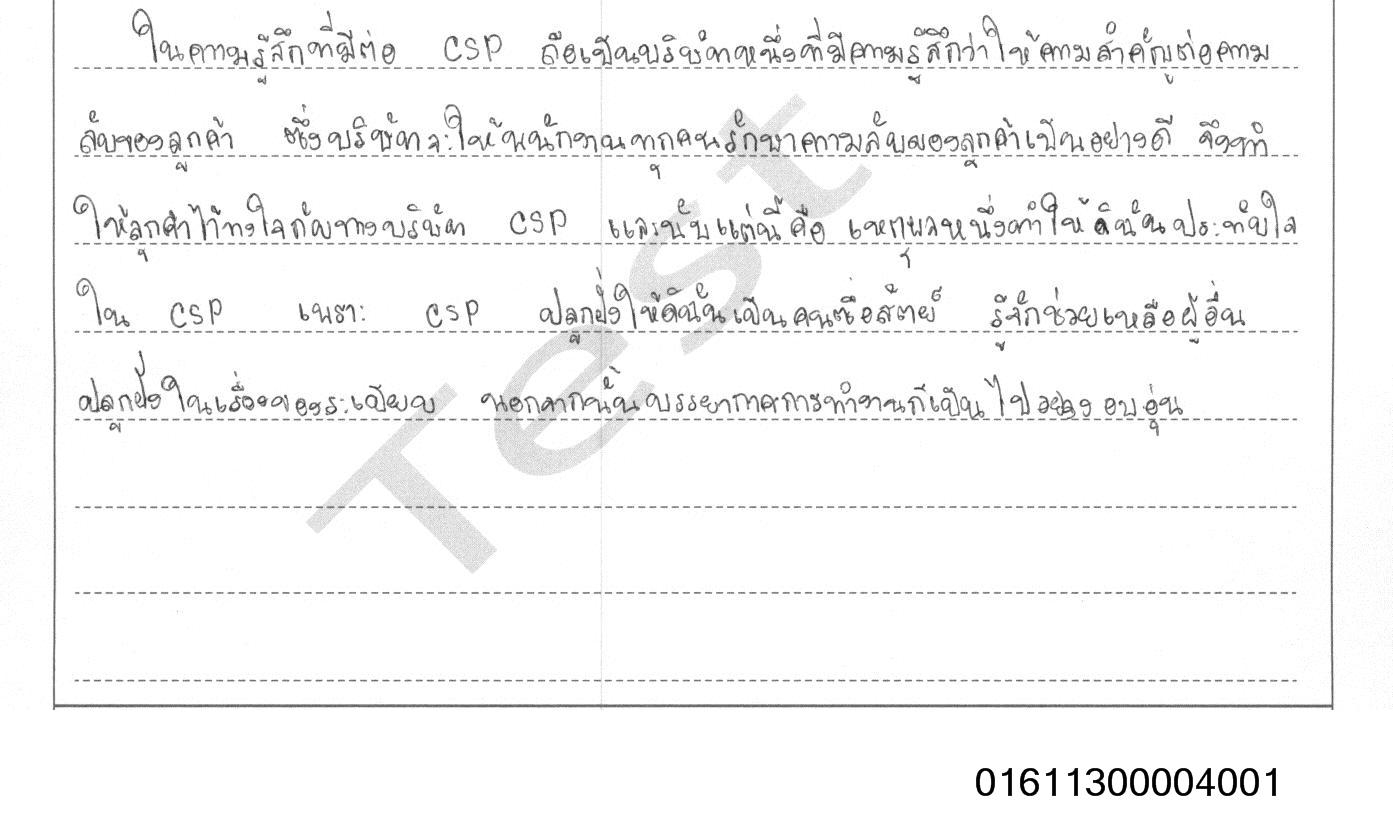 ในความรู้สึกที่มีต่อ CSP ถือเป็นบริษัทหนึ่งที่มีความรู้สึกว่าให้ความสำคัญต่อความ
ลับของลูกค้า ซึ่งบริษัทจะให้พนักงานทุกคนรักษาความลับของลูกค้าเป็นอย่างดี จึงทำ
ให้ลูกค้าไว้วางใจกับทางบริษัท CSP และนับแต่นี้คือ เหตุผลหนึ่งทำให้ดิฉันประทับใจ
ใน CSP เพราะ CSP ปลูกฝังให้ดิฉันเป็นคนซื่อสัตย์ รู้จักช่วยเหลือผู้อื่น
ปลูกฝังในเรื่องของระเบียบ นอกจากนั้นบรรยากาศการทำงานก็เป็นไปอย่างอบอุ่น
Test
01611300004001